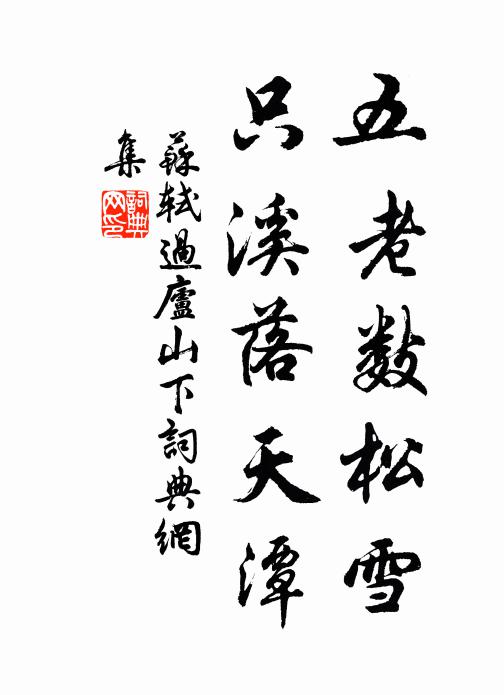 五老数松雪
只溪落天潭
蘇軾過廬山下詞典網
集
詞典
网印